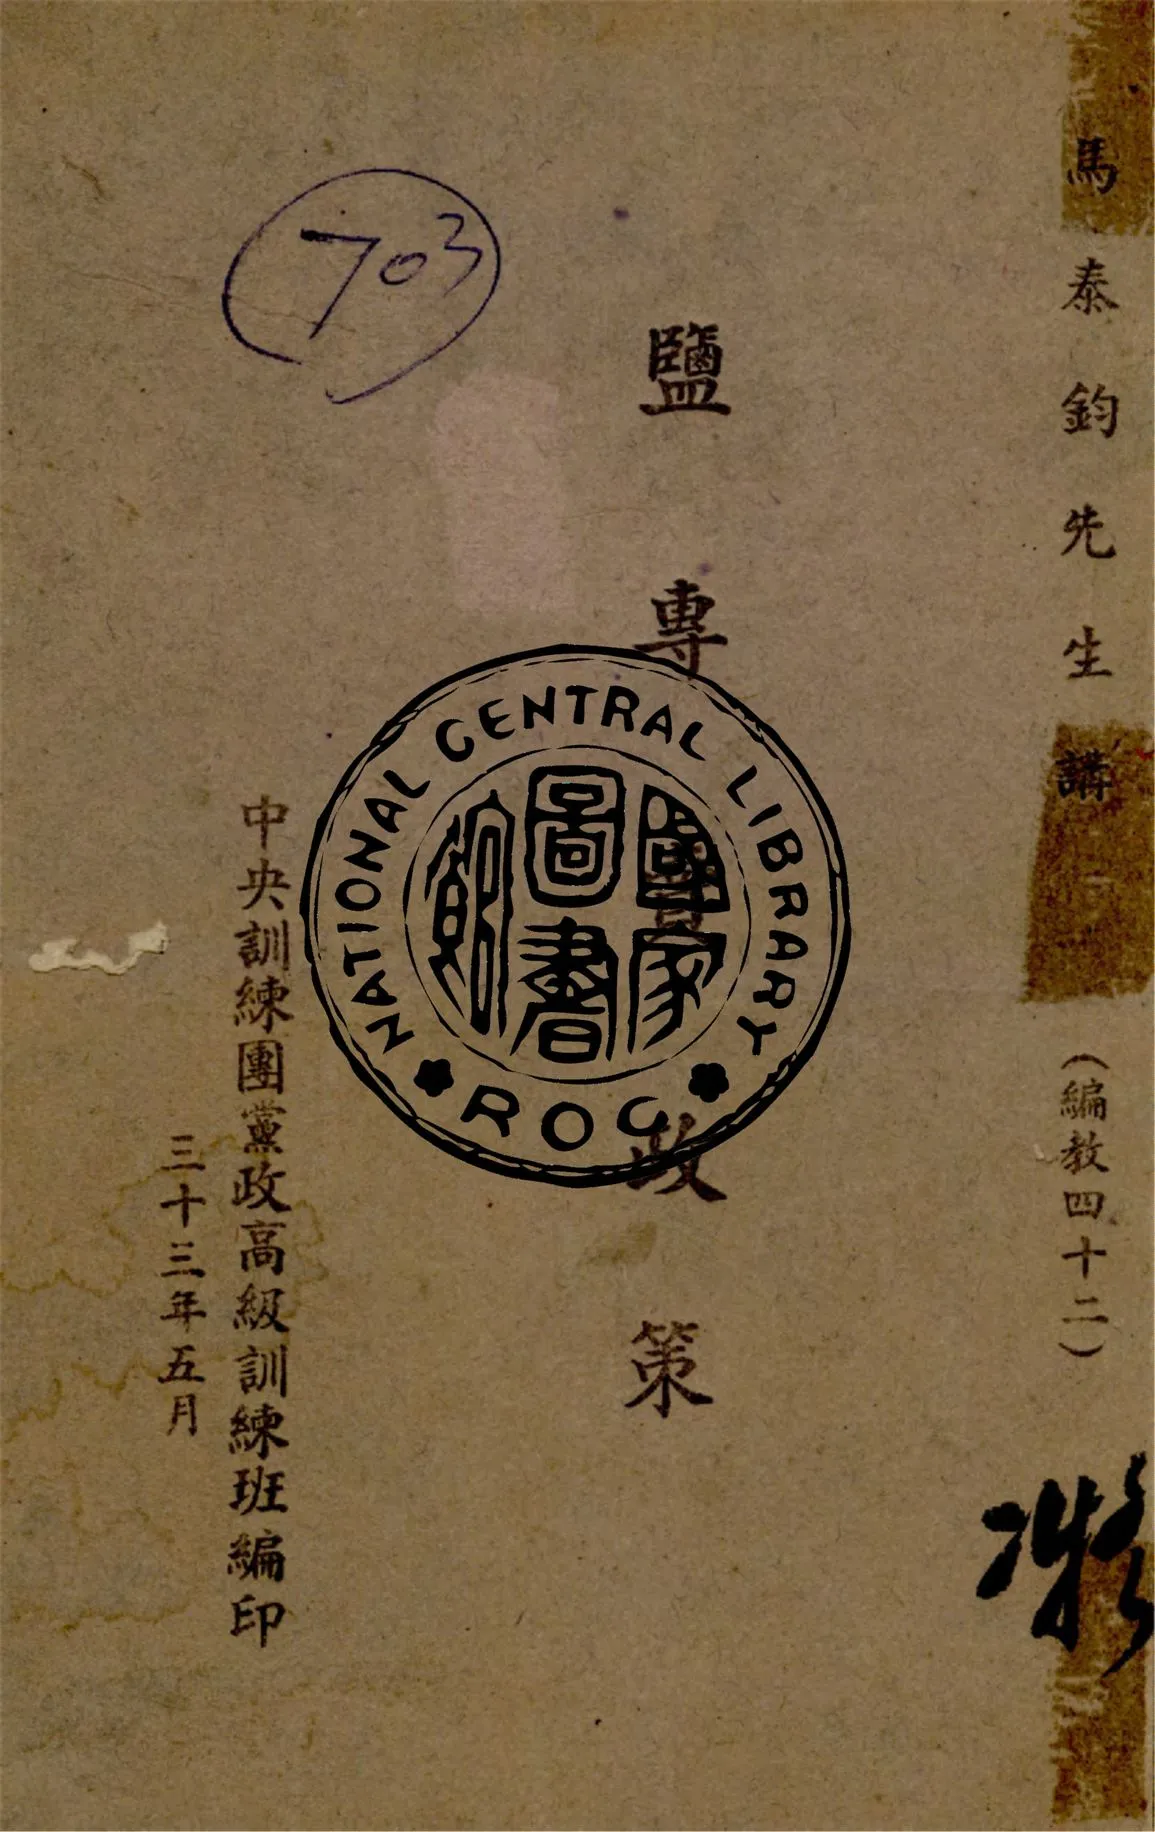 馬泰鈞先生講（編教四十二）
鹽專賣政策
中央訓練團黨政高級訓練班編印
三十三年五月
703
NATIONAL CENTRAL LIBRARY
國家圖書館
ROC